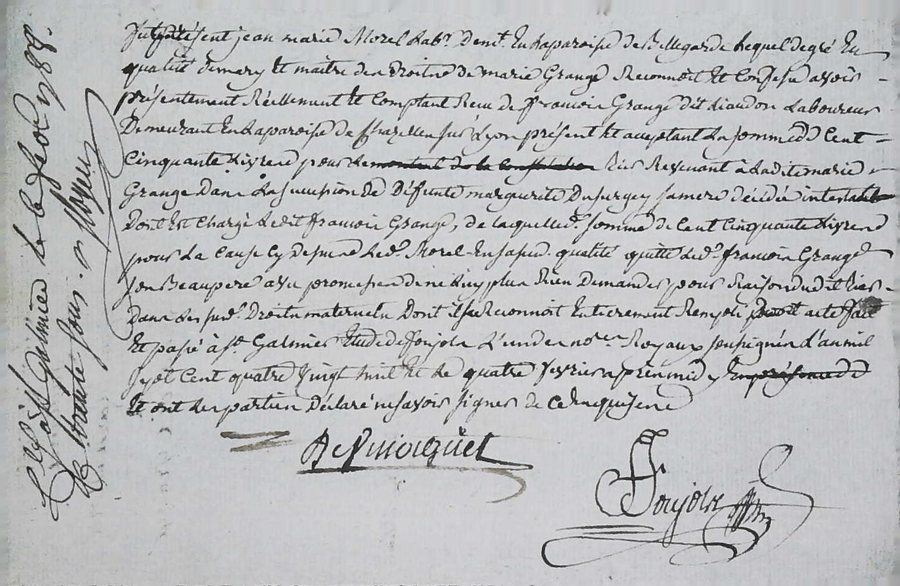 fut présent jean marie Morel Labr. demt. En La paroise de Bellegarde Lequel de gré En
qualité de mary Et maitre des droits de marie Grange Reconnoit Et Confesse avoir
présentement Réellement Et Comptant Recu de francois Grange dit Laboureur
Demeurant En La paroise de sur Lyon présent Et aceptant La somme de Cent
Cinquante Livres pour Le montant de la Revenant à Ladite marie
Grange dans La sucession de Défunte marguerite Dupuy sa mere décédée
Dont Est Chargé Ledit francois Grange, de laquelle de. somme de Cent Cinquante Livres
pour La Cause Cy dessus Led. Morel En sa sud. qualité quitte Led. francois Grange
son Beaupere avec promesse de ne Luy plus Rien Demander pour Raison dudit tiers
Dans Les sud. Droits maternels Dont il se Reconnoit Entierement Rempli acte fait
Et passé à St. Galmier Etude de foujols L'un des nores. Royaux soussignés L'an mil
sept Cent quatre vingt huit Et Le quatre fevrier après midy En présence de
Et ont Les parties Déclaré ne savoir signer de Ce Enquises
foujols
Clé à St Galmier le 6 1788.
Rt trente sous